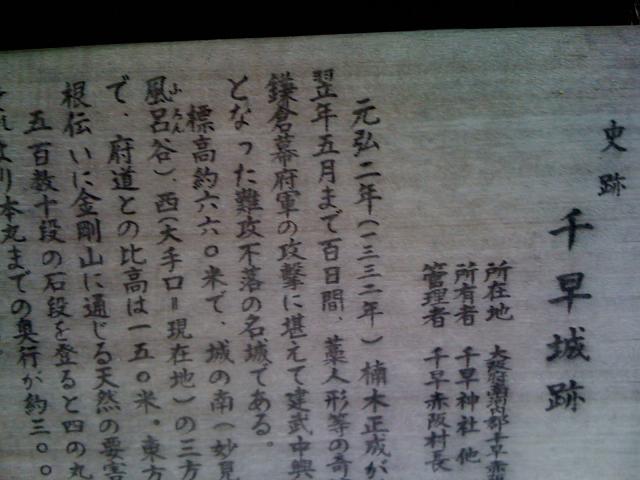 史跡
千早城跡
所在地 大阪府南河内郡千早赤阪
所有者 千早神社他
管理者 千早赤阪村長
元弘二年(一三三二年)楠木正成が
翌年五月まで百日間、藁人形等の奇
鎌倉幕府軍の攻撃に堪えて建武中興
となった難攻不落の名城である。
標高約六六〇米で、城の南(妙見
風呂谷)、西(大手口=現在地)の三方
で、府道との比高は一五〇米。東方
根伝いに金剛山に通じる天然の要害
五百数十段の石段を登ると四の丸
それより本丸までの奥行が約三〇〇